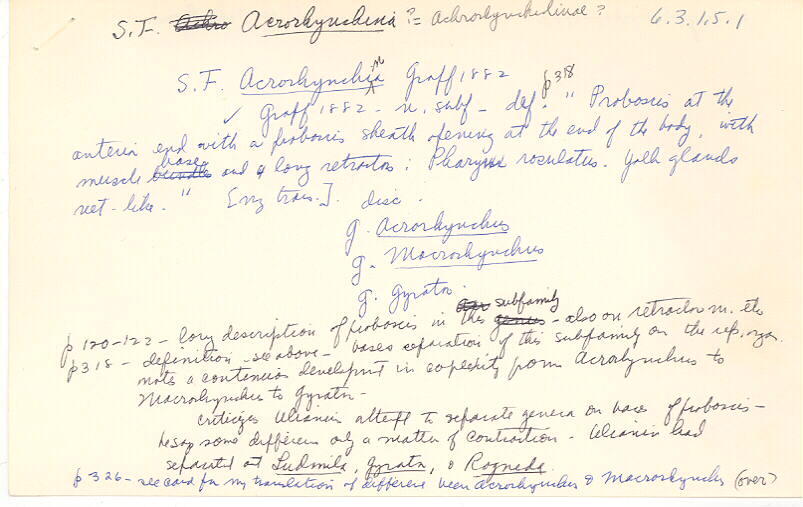 S.F. Achro Acrorhynchinia ?= Achrorhynchidinae ? 6.3.1.5.1
S.F. Acrorhynchina Graff 1882 p 318
✓ Graff 1882 - n. subf - def. " Proboscis at the
anterior end with a proboscis sheath opening at the end of the body, with
muscle bundles base and 4 long retractors: Pharynx rosulatus. Yolk glands
net-like. " [my trans.]. disc.
g. Acrorhynchus
g. Macrorhynchus
g. Gyrator.
p 120-122 - long description of proboscis in this genus subfamily - also on retractor m. etc
p 318 - definition - see above - bases separation of this subfamily on the rep. organ.
notes a continuous development in complexity from Acrorhynchus to
Macrorhynchus to Gyrator -
criticizes Ulianin attempt to separate genera on bases of proboscis -
he says some difference only a matter of contraction - Ulianin had
separated out Ludmila, Gyrator, & Rogneda.
p 326 - see card for my translation of difference between Acrorhynchus & Macrorhynchus (over)